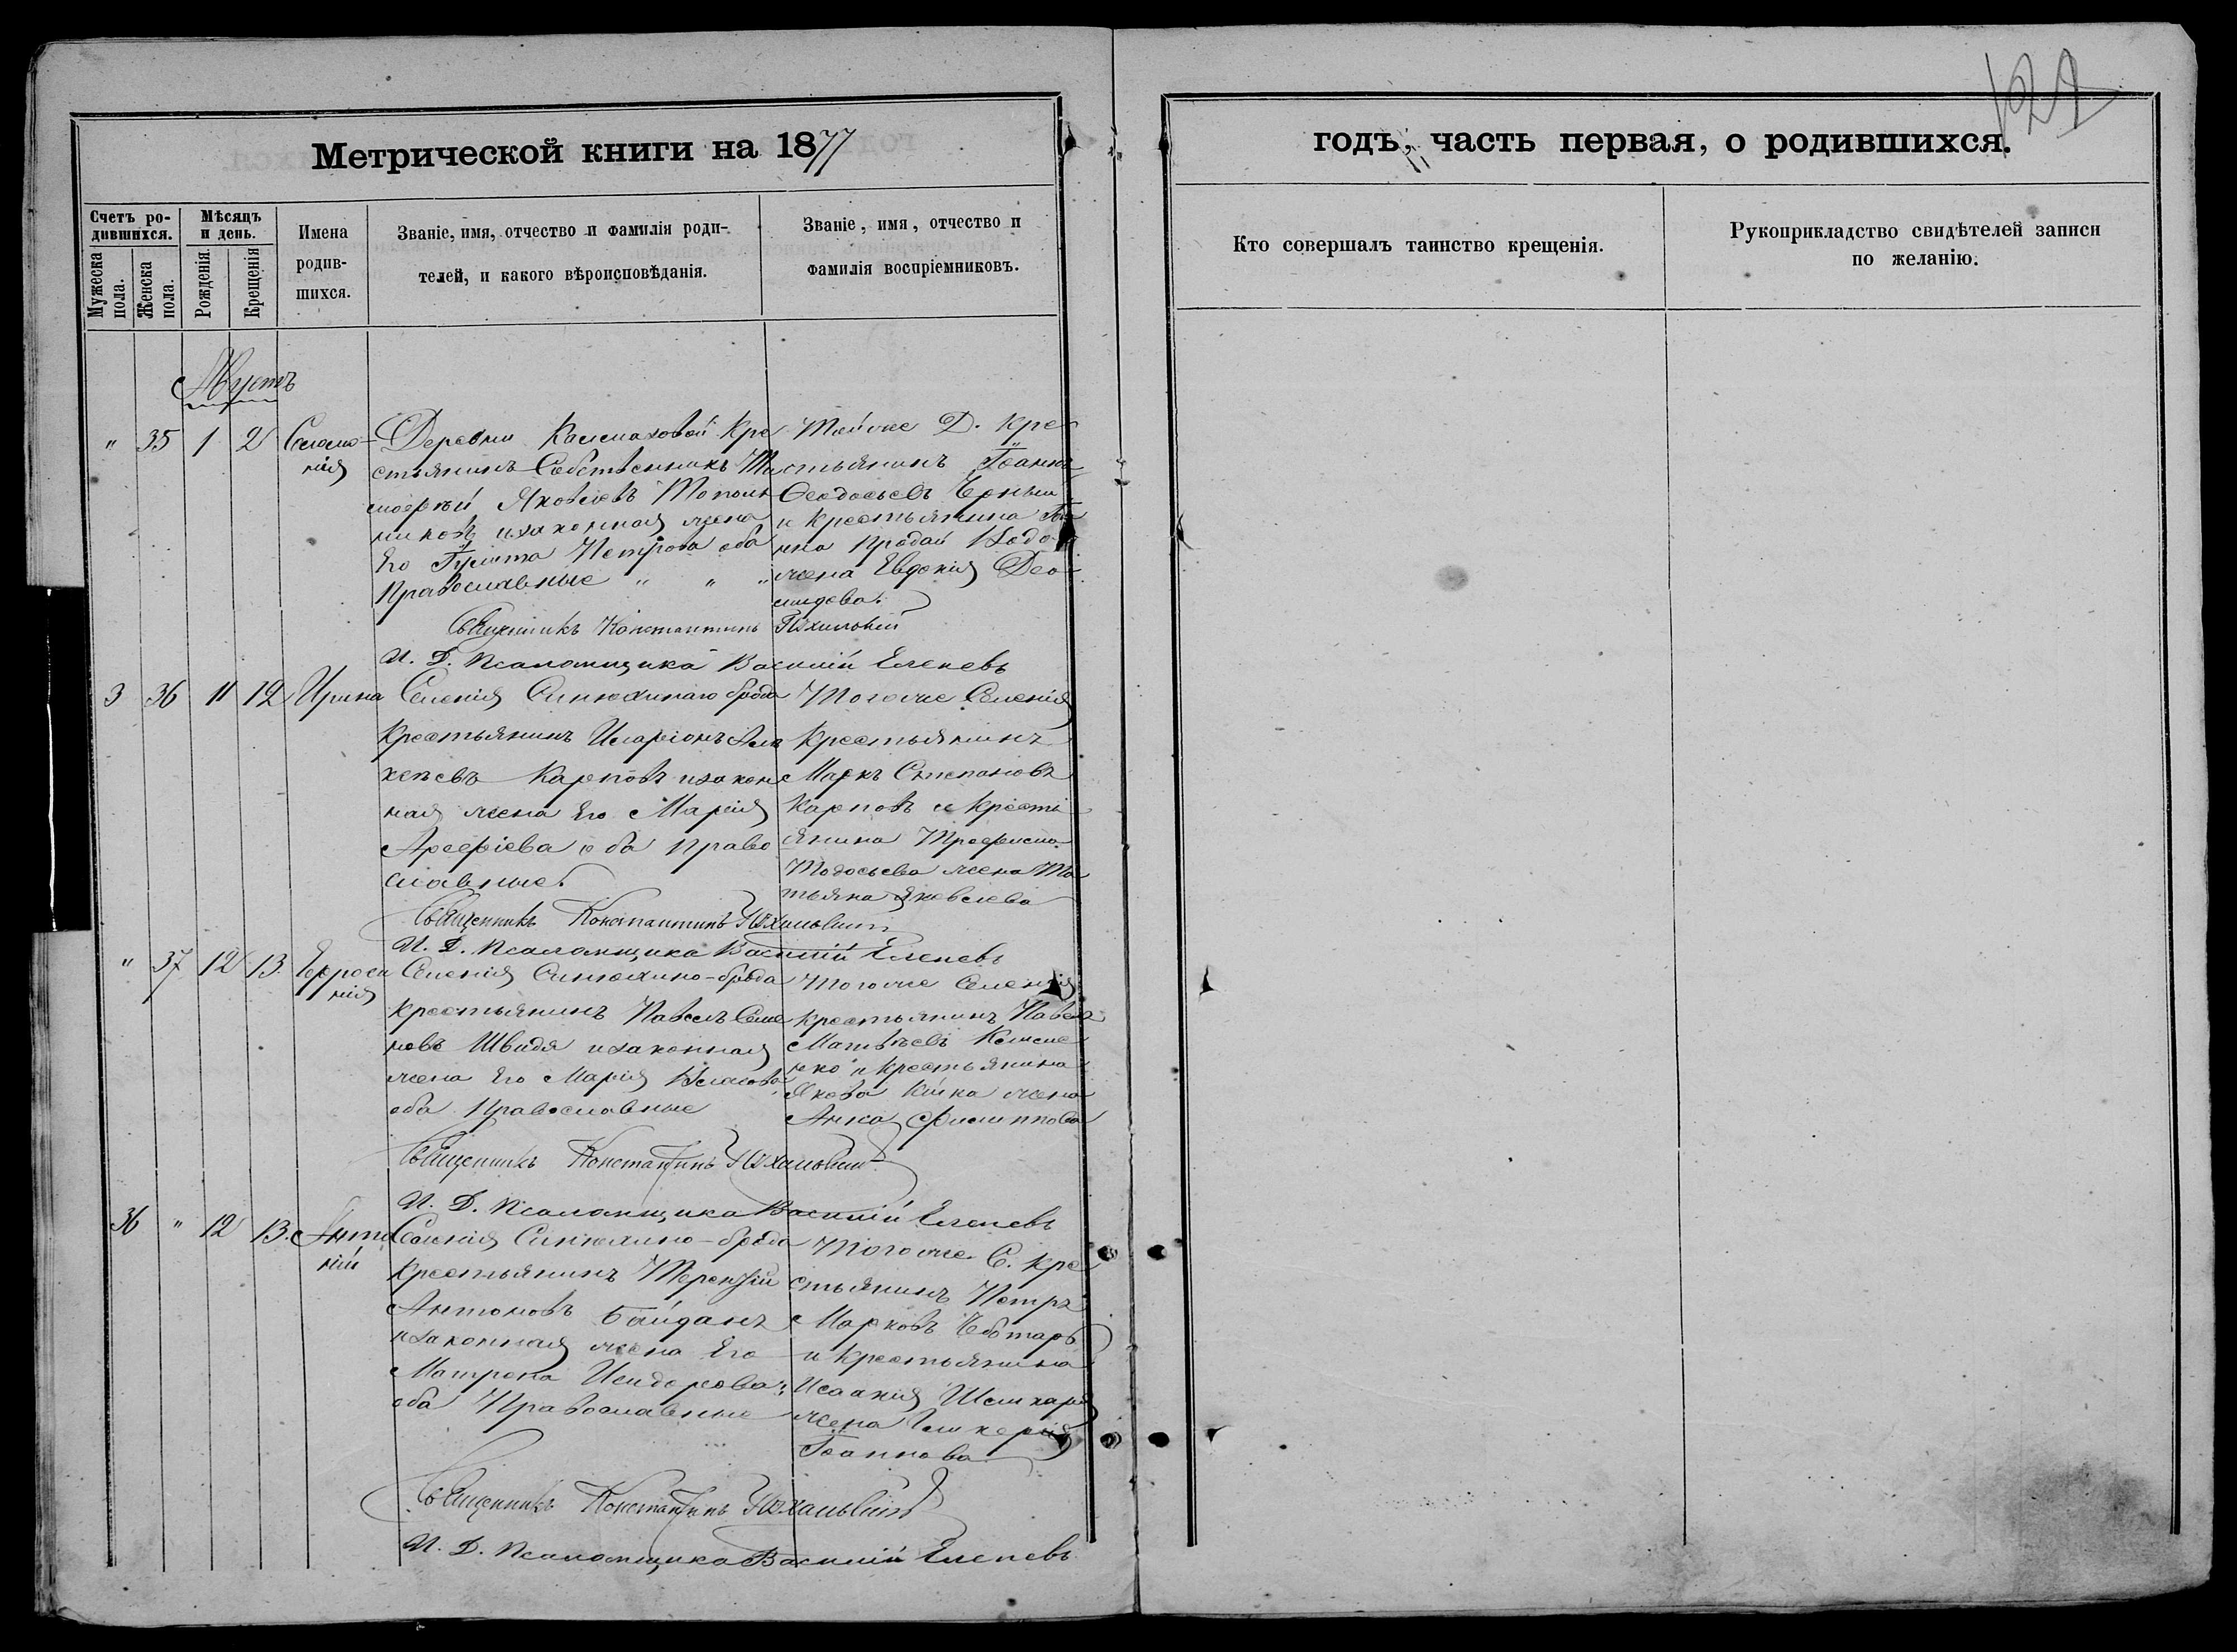 122
Метрической книги на 1877
годъ, часть первая, о родившихся.
Счетъ ро-
дившихся.
Мѣсяцъ
и день.
Мужеска
пола.
Женска
пола.
Рожденія.
Крещенія
Имена
родив-
шихся.
Званіе, имя, отчество и фамилія роди-
телей, и какого вѣроисповѣданія.
Званіе, имя, отчество и
фамилія воспріемниковъ.
Кто совершалъ таинство крещенія.
Рукоприкладство свидѣтелей записи
по желанію.
Августъ
" 35 1 2 Соломо-
нія
Деревни Кре
стьянинъ Собственникъ Ти
моѳей Яковлевъ Тополь
никовъ и законная жена
Его Петрова оба
Православные " " "
Той же Д. Кре
стьянинъ Іоаннъ
Ѳеодосьевъ
и крестьянина
жена Евдокія Део
мидова.
Священникъ Константинъ
И. Д. Псаломщика Василій Еленевъ
3 36 11 12 Ирина
Селенія Синюхинаго брода
Крестьянинъ Иларіонъ Але
ксѣевъ Карповъ и закон
ная жена Его Марія
Арефіева оба право
славные.
Того же Селенія
Крестьянинъ
Маркъ Степановъ
Карповъ и крестьі
янина Трофима
Тодосьева жена Та
тьяна Яковлева
Священникъ Константинъ
И. Д. Псаломщика Василій Еленевъ
" 37 12 13. Ефроси
нія
Селенія Синюхино-брода
Крестьянинъ Павелъ Семе
новъ Швидя и законная
жена Его Марія Власова
оба Православные
Того же Селенія
крестьянинъ Павелъ
Матвѣевъ
и крестьянина
Якова жена
Анна Филиппова
Священникъ Константинъ
И. Д. Псаломщика Василій Еленевъ
36 " 12 13. Анто
ній
Селенія Синюхино-брода
Крестьянинъ Терентій
Антоновъ Байданъ
и законная жена Его
Матрона Исидорова,
оба Православные
Того же С. Кре
стьянинъ Петръ
Марковъ Чеботарь
и Крестьянина
Исаакія
жена Гликерія
Іоаннова
Священникъ Константинъ
И. Д. Псаломщика Василій Еленевъ